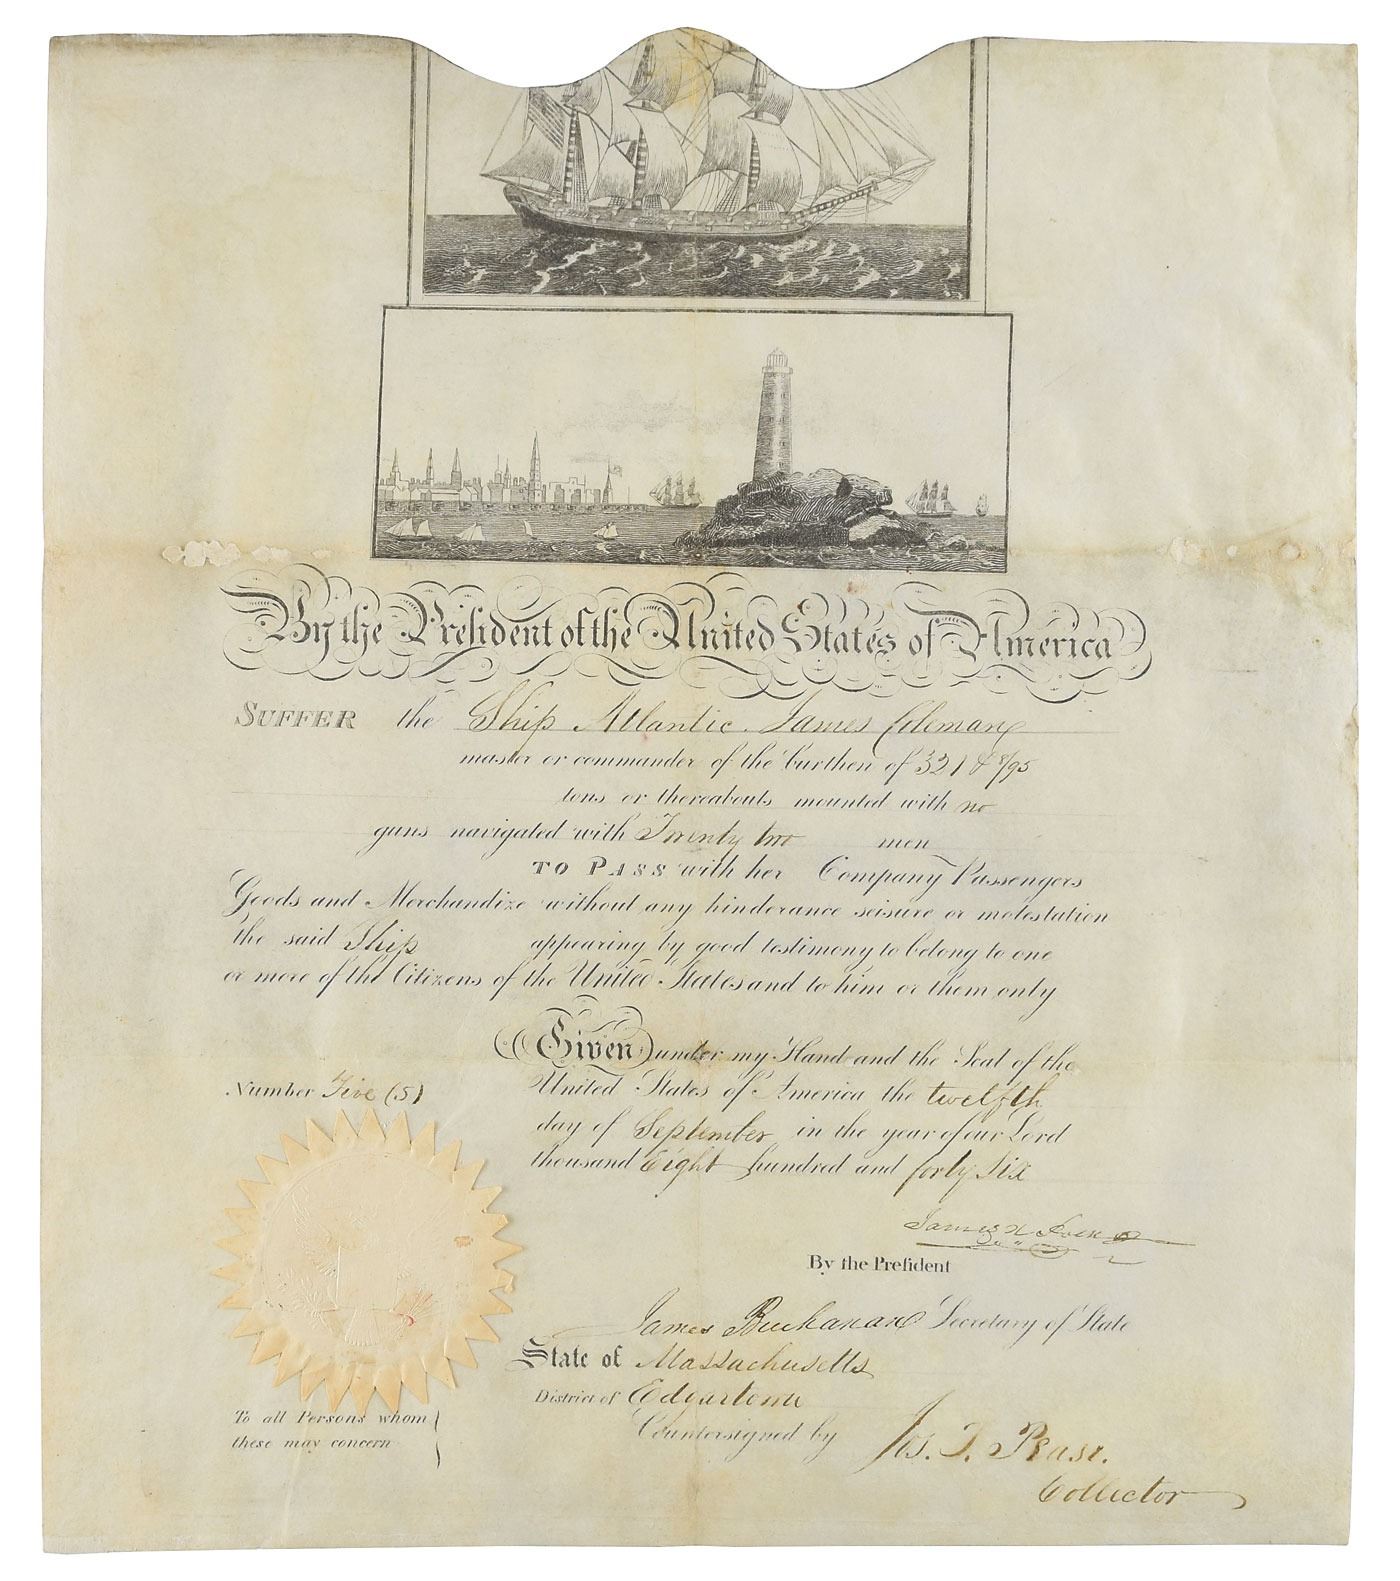 By the President of the United States of America
SUFFER the Ship Atlantic. James Coleman
master or commander of the burthen of 321 & 8/95
tons or thereabouts mounted with no
guns navigated with Twenty two men
TO PASS with her Company Passengers
Goods and Merchandize without any hinderance seisure or molestation
the said Ship appearing by good testimony to belong to one
or more of the Citizens of the United States and to him or them only
Given under my Hand and the Seal of the
United States of America the twelfth
day of September in the year of our Lord
thousand Eight hundred and forty Six
Number Five (5)
James K Polk
By the Preſident
James Buchanan Secretary of State
State of Massachusetts
District of Edgartown
Countersigned by Jos. T. Pease.
Collector
To all Persons whom
these may concern